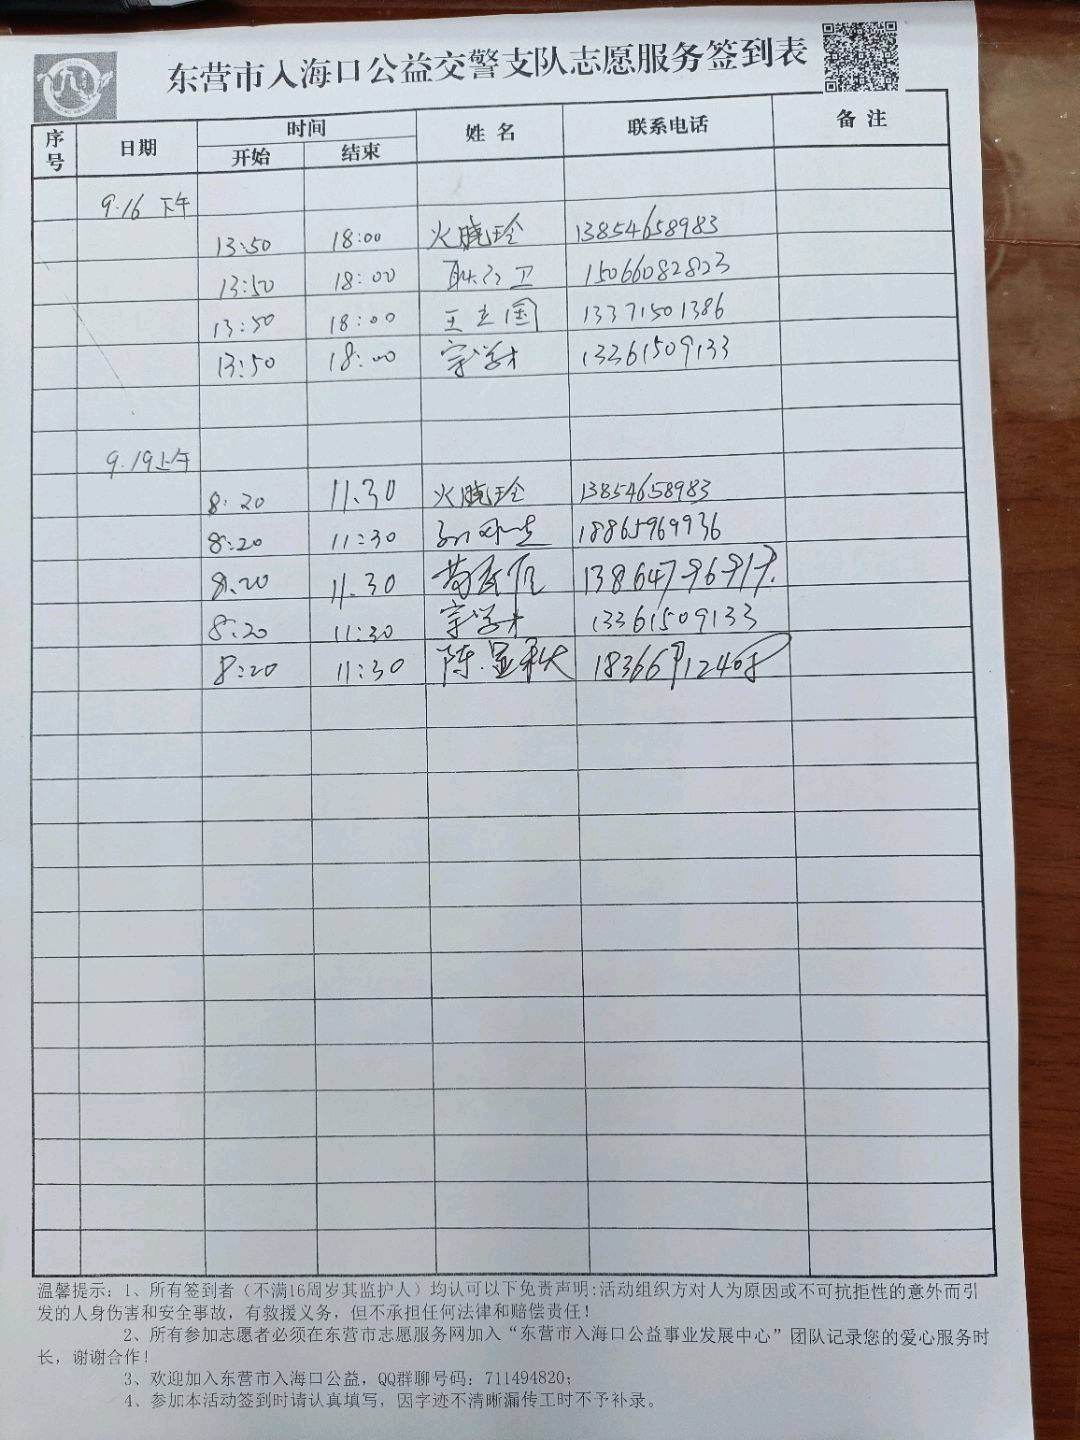 东营市入海口公益交警支队志愿服务签到表
序号 日期 时间 开始 结束 姓名 联系电话 备注
9.16 下午
13:50 18:00 火晓玲 13854658983
13:50 18:00 15066082823
13:50 18:00 王立国 13371501386
13:50 18:00 宗学才 13361509133
9.19上午
8:20 11.30 火晓玲 13854658983
8:20 11:30 18865969936
8.20 11.30
8:20 11:30 宗学才 13361509133
8:20 11:30
温馨提示:1、所有签到者(不满16周岁其监护人)均认可以下免责声明:活动组织方对人为原因或不可抗拒性的意外而引
发的人身伤害和安全事故,有救援义务,但不承担任何法律和赔偿责任!
2、所有参加志愿者必须在东营市志愿服务网加入“东营市入海口公益事业发展中心”团队记录您的爱心服务时
长,谢谢合作!
3、欢迎加入东营市入海口公益,QQ群聊号码:711494820;
4、参加本活动签到时请认真填写,因字迹不清晰漏传工时不予补录。